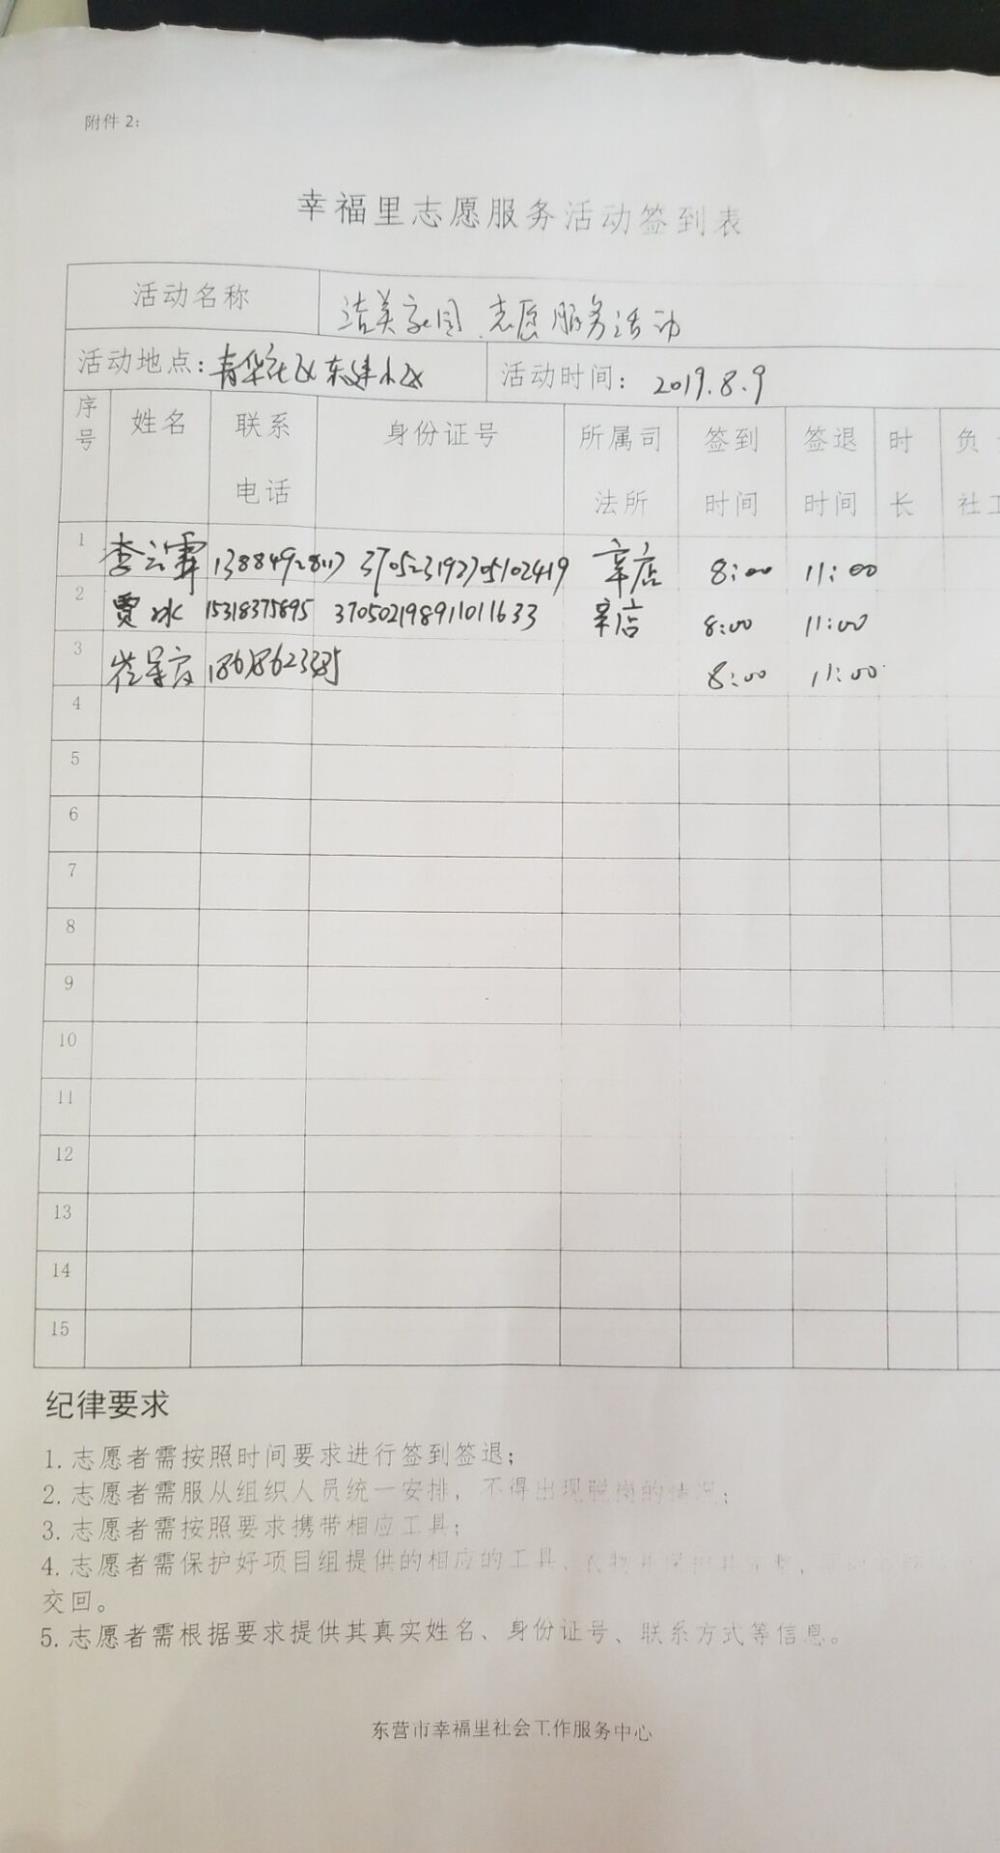 附件 2：
幸福里志愿服务活动签到表
活动名称 洁美家园 志愿服务活动
活动地点：青华社区东建小区 活动时间： 2019.8.9
序号 姓名 联系电话 身份证号 所属司法所 签到时间 签退时间 时长 负 社工
1 李云霏 辛店 8:00 11:00
2 贾冰 15318375895 370502198911011633 辛店 8:00 11:00
3 崔 8:00 11:00
4
5
6
7
8
9
10
11
12
13
14
15
纪律要求
1.志愿者需按照时间要求进行签到签退；
2.志愿者需服从组织人员统一安排，不得出现脱岗的情况；
3.志愿者需按照要求携带相应工具；
4.志愿者需保护好项目组提供的相应的工具、
交回。
5.志愿者需根据要求提供其真实姓名、身份证号、联系方式等信息。
东营市幸福里社会工作服务中心